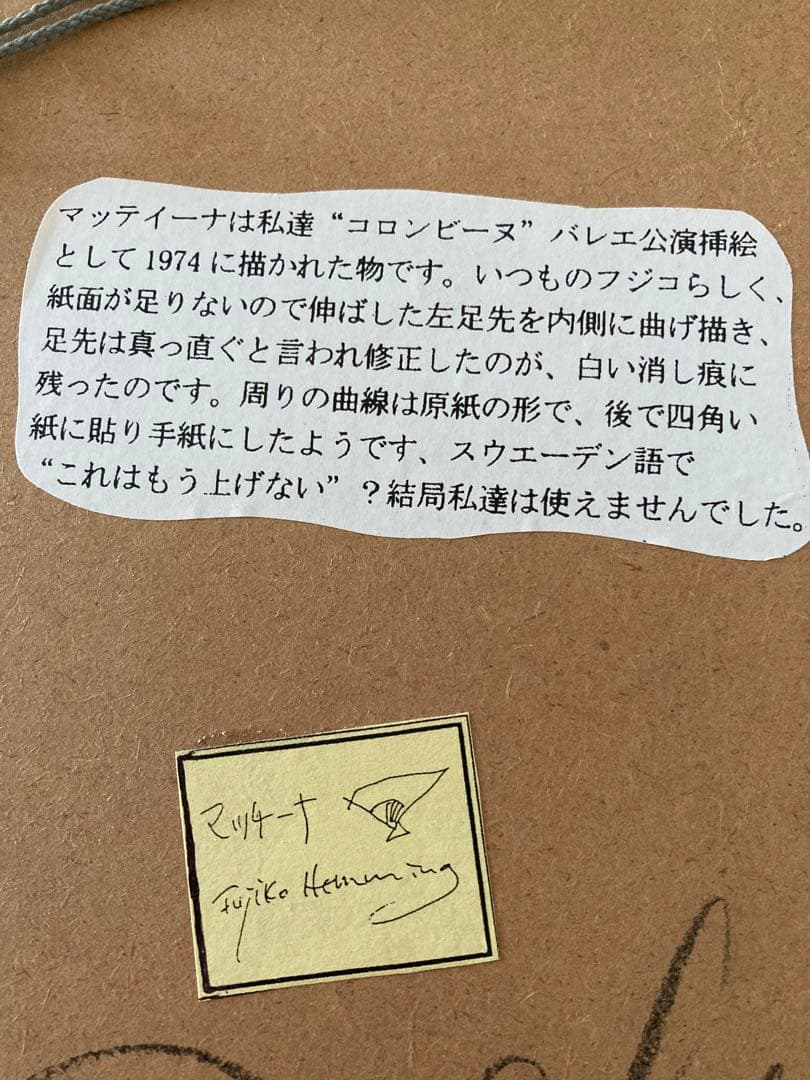 マッテイーナは私達“コロンビーヌ”バレエ公演挿絵
として1974に描かれた物です。いつものフジコらしく、
紙面が足りないので伸ばした左足先を内側に曲げ描き、
足先は真っ直ぐと言われ修正したのが、白い消し痕に
残ったのです。周りの曲線は原紙の形で、後で四角い
紙に貼り手紙にしたようです、スウエーデン語で
“これはもう上げない”？結局私達は使えませんでした。
マッチーナ
Fujiko Hemming